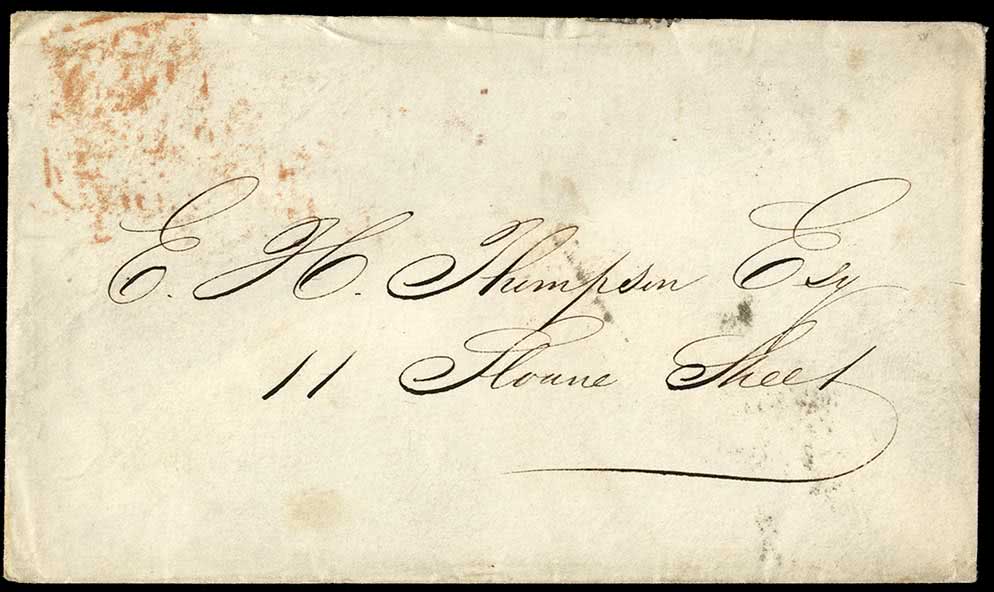 E. H. Thompson Esq
11 Sloane Street